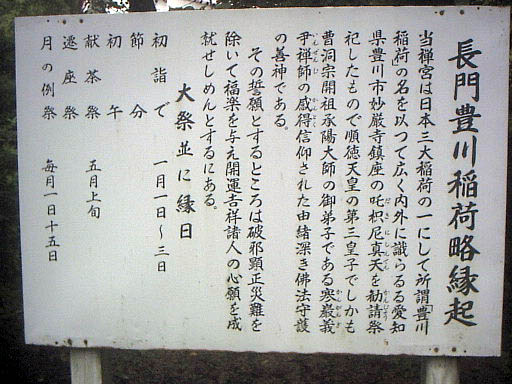 長門豊川稲荷略縁起
当禅宮は日本三大稲荷の一にして所謂「豊川
稲荷」の名を以つて広く内外に識らるる愛知
県豊川市妙厳寺鎮座の吒枳尼真天を勧請祭
祀したもので順徳天皇の第三皇子でしかも
曹洞宗開祖承陽大師の御弟子である寒巌義
尹禅師の感得信仰された由緒深き佛法守護
の善神である。
その誓願とするところは破邪顕正災難を
除いて福楽を与え開運吉祥諸人の心願を成
就せしめんとするにある。
大祭並に縁日
初詣で 一月一日〜三日
節分
初午
献茶祭 五月上旬
遷座祭
月の例祭 毎月一日十五日